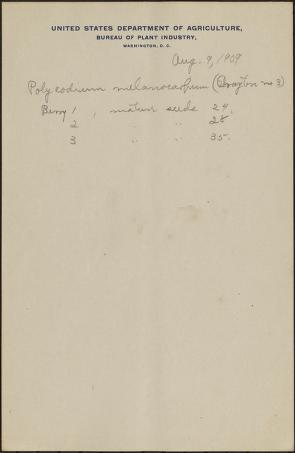 UNITED STATES DEPARTMENT OF AGRICULTURE,
BUREAU OF PLANT INDUSTRY,
WASHINGTON, D. C.
Aug. 9, 1909
Polycodium melanocarpum (Drayton no 3)
Berry 1, mature seeds 24.
2 " " 28
3 " " 35.